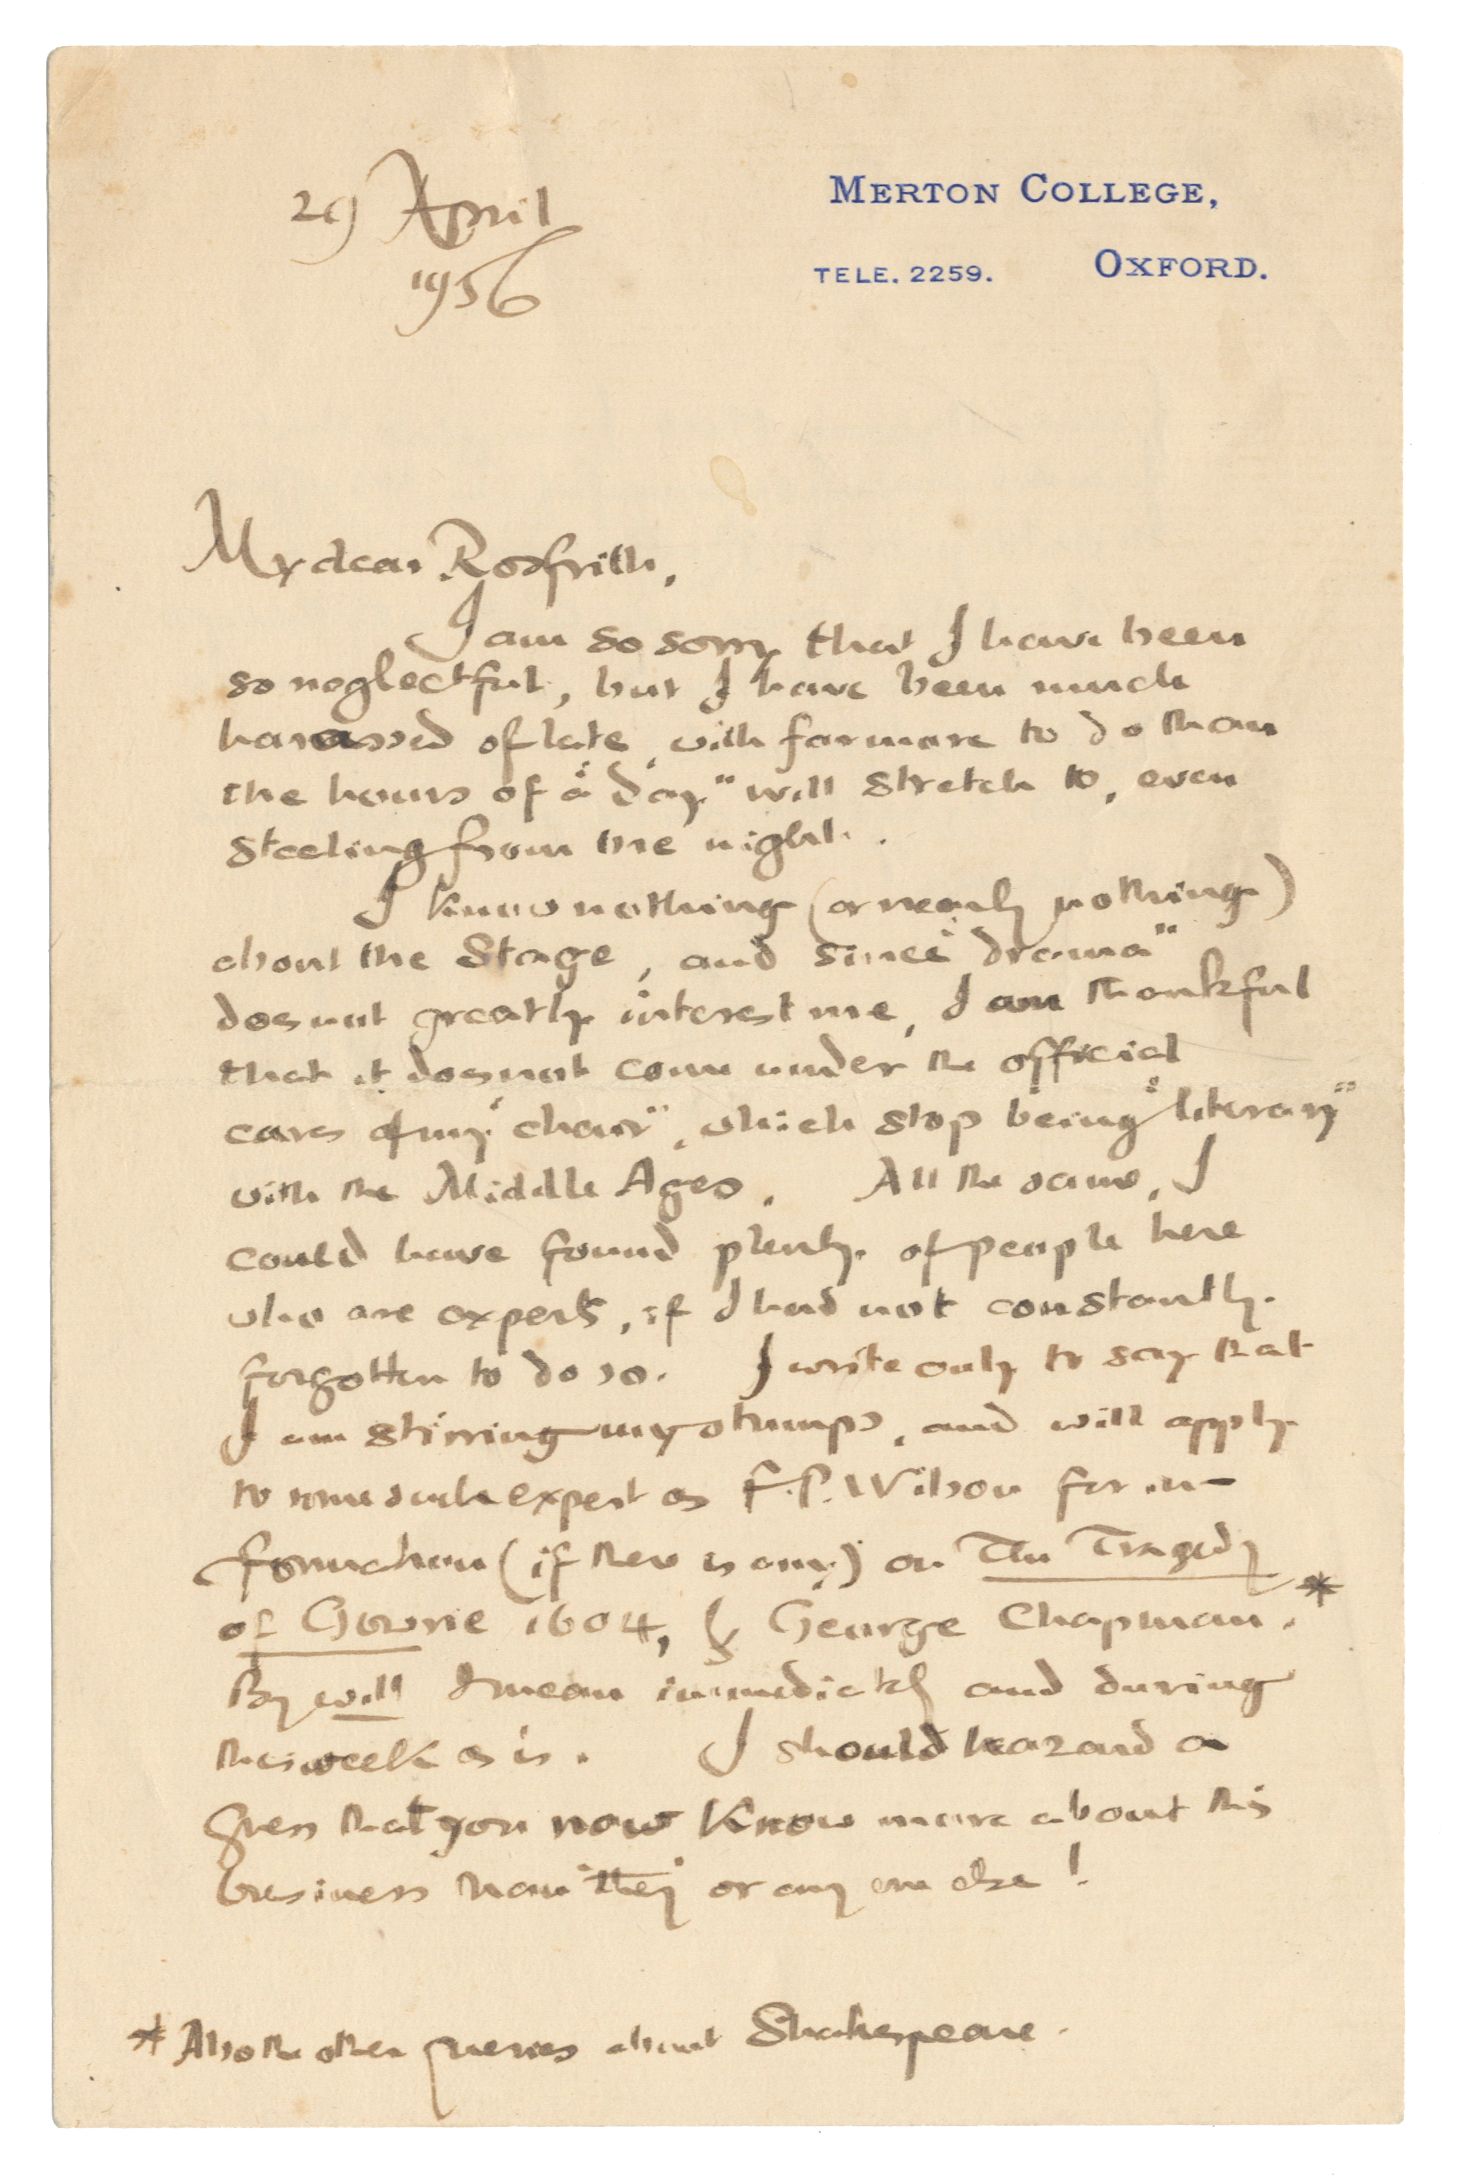 29 April
1956
MERTON COLLEGE,
TELE. 2259. OXFORD.
My dear Rosfrith,
I am so sorry that I have been
so neglectful, but I have been much
harassed of late, with far more to do than
the hours of "a day" will stretch to, even
stealing from the night.
I know nothing (or nearly nothing)
about the Stage, and since "drama"
does not greatly interest me, I am thankful
that it does not come under the official
cares of my "chair", which stop being "literary"
with the Middle Ages. All the same, I
could have found plenty of people here
who are experts, if I had not constantly
forgotten to do so. I write only to say that
I am stirring my stumps, and will apply
to some such expert as F.P. Wilson for in-
formation (if there is any) on The Tragedy
of Gowrie 1604, & George Chapman.*
By will I mean immediately and during
this week as is. I should hazard a
guess that you now know more about this
business than 'they' or any one else!
* Also the other queries about Shakespeare.